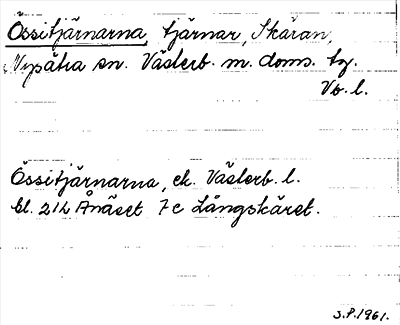 Össitjärnarna, tjärnar, Skäran,
Nysätra sn. Västerb. m. doms. tg.
Vb. l.
Össitjärnarna, ek. Västerb. l.
bl. 21L Ånäset 7c Långskäret.
S.P. 1961.